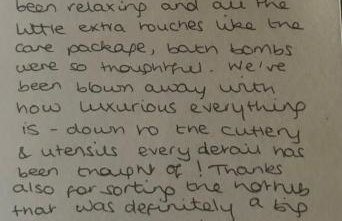 been relaxing and all the
little extra touches like the
care package, bath bombs
were so thoughtful. We've
been blown away with
how luxurious everything
is - down to the cutlery
& utensils every detail has
been thought of! Thanks
also for sorting the hottub
that was definitely a big